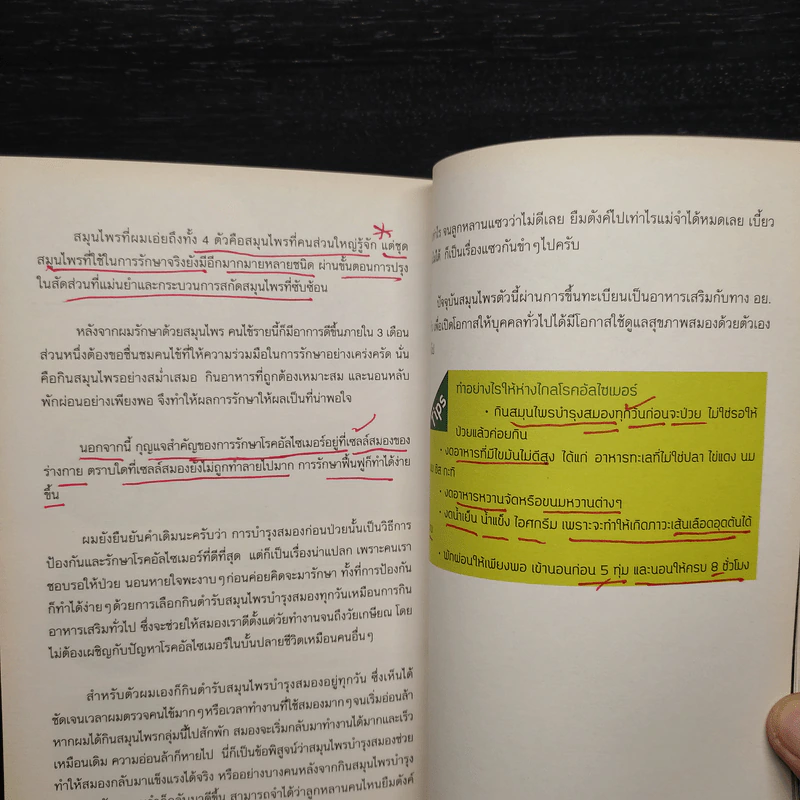 สมุนไพรที่ผมเอ่ยถึงทั้ง 4 ตัวคือสมุนไพรที่คนส่วนใหญ่รู้จัก แต่ชุด
สมุนไพรที่ใช้ในการรักษาจริงยังมีอีกมากมายหลายชนิด ผ่านขั้นตอนการปรุง
ในสัดส่วนที่แม่นยำและกระบวนการสกัดสมุนไพรที่ซับซ้อน
หลังจากผมรักษาด้วยสมุนไพร คนไข้รายนี้ก็มีอาการดีขึ้นภายใน 3 เดือน
ส่วนหนึ่งต้องขอชื่นชมคนไข้ที่ให้ความร่วมมือในการรักษาอย่างเคร่งครัด นั่น
คือกินสมุนไพรอย่างสม่ำเสมอ กินอาหารที่ถูกต้องเหมาะสม และนอนหลับ
พักผ่อนอย่างเพียงพอ จึงทำให้ผลการรักษาให้ผลเป็นที่น่าพอใจ
นอกจากนี้ กุญแจสำคัญของการรักษาโรคอัลไซเมอร์อยู่ที่เซลล์สมองของ
ร่างกาย ตราบใดที่เซลล์สมองยังไม่ถูกทำลายไปมาก การรักษาฟื้นฟูก็ทำได้ง่าย
ขึ้น
ผมยังยืนยันคำเดิมนะครับว่า การบำรุงสมองก่อนป่วยนั้นเป็นวิธีการ
ป้องกันและรักษาโรคอัลไซเมอร์ที่ดีที่สุด แต่ก็เป็นเรื่องน่าแปลก เพราะคนเรา
ชอบรอให้ป่วย นอนหายใจพะงาบๆก่อนค่อยคิดจะมารักษา ทั้งที่การป้องกัน
ก็ทำได้ง่ายๆด้วยการเลือกกินตำรับสมุนไพรบำรุงสมองทุกวันเหมือนการกิน
อาหารเสริมทั่วไป ซึ่งจะช่วยให้สมองเราดีตั้งแต่วัยทำงานจนถึงวัยเกษียณ โดย
ไม่ต้องเผชิญกับปัญหาโรคอัลไซเมอร์ในบั้นปลายชีวิตเหมือนคนอื่นๆ
สำหรับตัวผมเองก็กินตำรับสมุนไพรบำรุงสมองอยู่ทุกวัน ซึ่งเห็นได้
ชัดเจนเวลาผมตรวจคนไข้มากๆหรือเวลาทำงานที่ใช้สมองมากๆจนเริ่มอ่อนล้า
หากผมได้กินสมุนไพรกลุ่มนี้ไปสักพัก สมองจะเริ่มกลับมาทำงานได้มากและเร็ว
เหมือนเดิม ความอ่อนล้าก็หายไป นี่ก็เป็นข้อพิสูจน์ว่าสมุนไพรบำรุงสมองช่วย
ทำให้สมองกลับมาแข็งแรงได้จริง หรืออย่างบางคนหลังจากกินสมุนไพรบำรุง
กลับมาดีขึ้น สามารถจำได้ว่าลูกหลานคนไหนยืมตังค์
จนลูกหลานแซวว่าไม่ดีเลย ยืมตังค์ไปเท่าไรแม่จำได้หมดเลย เบี้ยว
ก็เป็นเรื่องแซวกันขำๆไปครับ
ปัจจุบันสมุนไพรตัวนี้ผ่านการขึ้นทะเบียนเป็นอาหารเสริมกับทาง อย.
เพื่อเปิดโอกาสให้บุคคลทั่วไปได้มีโอกาสใช้ดูแลสุขภาพสมองด้วยตัวเอง
Tips
ทำอย่างไรให้ห่างไกลโรคอัลไซเมอร์
• กินสมุนไพรบำรุงสมองทุกวันก่อนจะป่วย ไม่ใช่รอให้
ป่วยแล้วค่อยกิน
• งดอาหารที่มีไขมันไม่ดีสูง ได้แก่ อาหารทะเลที่ไม่ใช่ปลา ไข่แดง นม
ชีส กะทิ
• งดอาหารหวานจัดหรือขนมหวานต่างๆ
• งดน้ำเย็น น้ำแข็ง ไอศกรีม เพราะจะทำให้เกิดภาวะเส้นเลือดอุดตันได้
• พักผ่อนให้เพียงพอ เข้านอนก่อน 5 ทุ่ม และนอนให้ครบ 8 ชั่วโมง